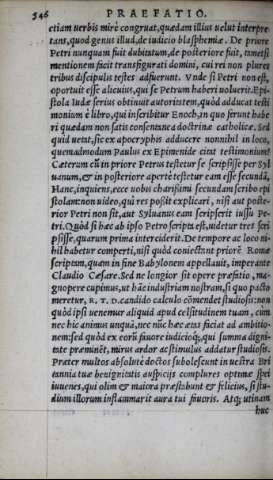 346 PRAEFATIO.
etiam uerbis mirè congruat, quædam illius uelut interpre
tans, quod genus illud, de iudicio blasphemiæ. De priore
Petri nunquam fuit dubitatum, de posteriore fuit, tametsi
mentionem facit transfigurati domini, cui rei non plures
tribus discipulis testes adfuerunt. Vnde si Petri non est,
oportuit esse alicuius, qui se Petrum haberi uoluerit. Epi
stola Iudæ serius obtinuit autoritatem, quòd adducat testi
monium è libro, qui inscribitur Enoch, in quo ferunt habe
ri quædam non satis consentanea doctrinæ catholicæ. Sed
quid uetat, sic ex apocryphis adducere nonnihil in loco,
quemadmodum Paulus ex Epimenide citat testimonium?
Cæterum cũ in priore Petrus testetur se scripsisse per Syl
uanum, & in posteriore apertè testetur eam esse secundã,
Hanc, inquiens, ecce uobis charissimi secundam scribo epi
stolam: non uideo, quì res possit explicari, nisi aut poste-
rior Petri non sit, aut Syluanus eam scripserit iussu Pe-
tri. Quòd si hæc ab ipso Petro scripta est, uidetur tres scri
psisse, quarum prima interciderit. De tempore ac loco ni-
hil habetur comperti, nisi quòd coniectant priorẽ Romæ
scriptam, quam in fine Babylonem appellauit, imperante
Claudio Cæsare. Sed ne longior sit opere præfatio, ma-
gnopere cupimus, ut hãc industriam nostram, si quo pacto
meretur, R. T. D. candido calculo cõmendet studiosis: non
quòd ipsi uenemur aliquid apud celsitudinem tuam, cum
nec hic animus unquã, nec nũc hæc ætas faciat ad ambitio-
nem: sed quòd ex eorũ fauore iudicioq́;, qui summa digni-
tate præminẽt, mirus ardor ac stimulus addatur studiosis.
Præter multos absolutè doctos subolescunt in uestra Bri
tannia tuæ benignitatis auspicijs complures optimæ spei
iuuenes, qui olim & maiora præstabunt & felicius, si stu-
dium illorum inflammarit aura tui fauoris. Atq; utinam
huc